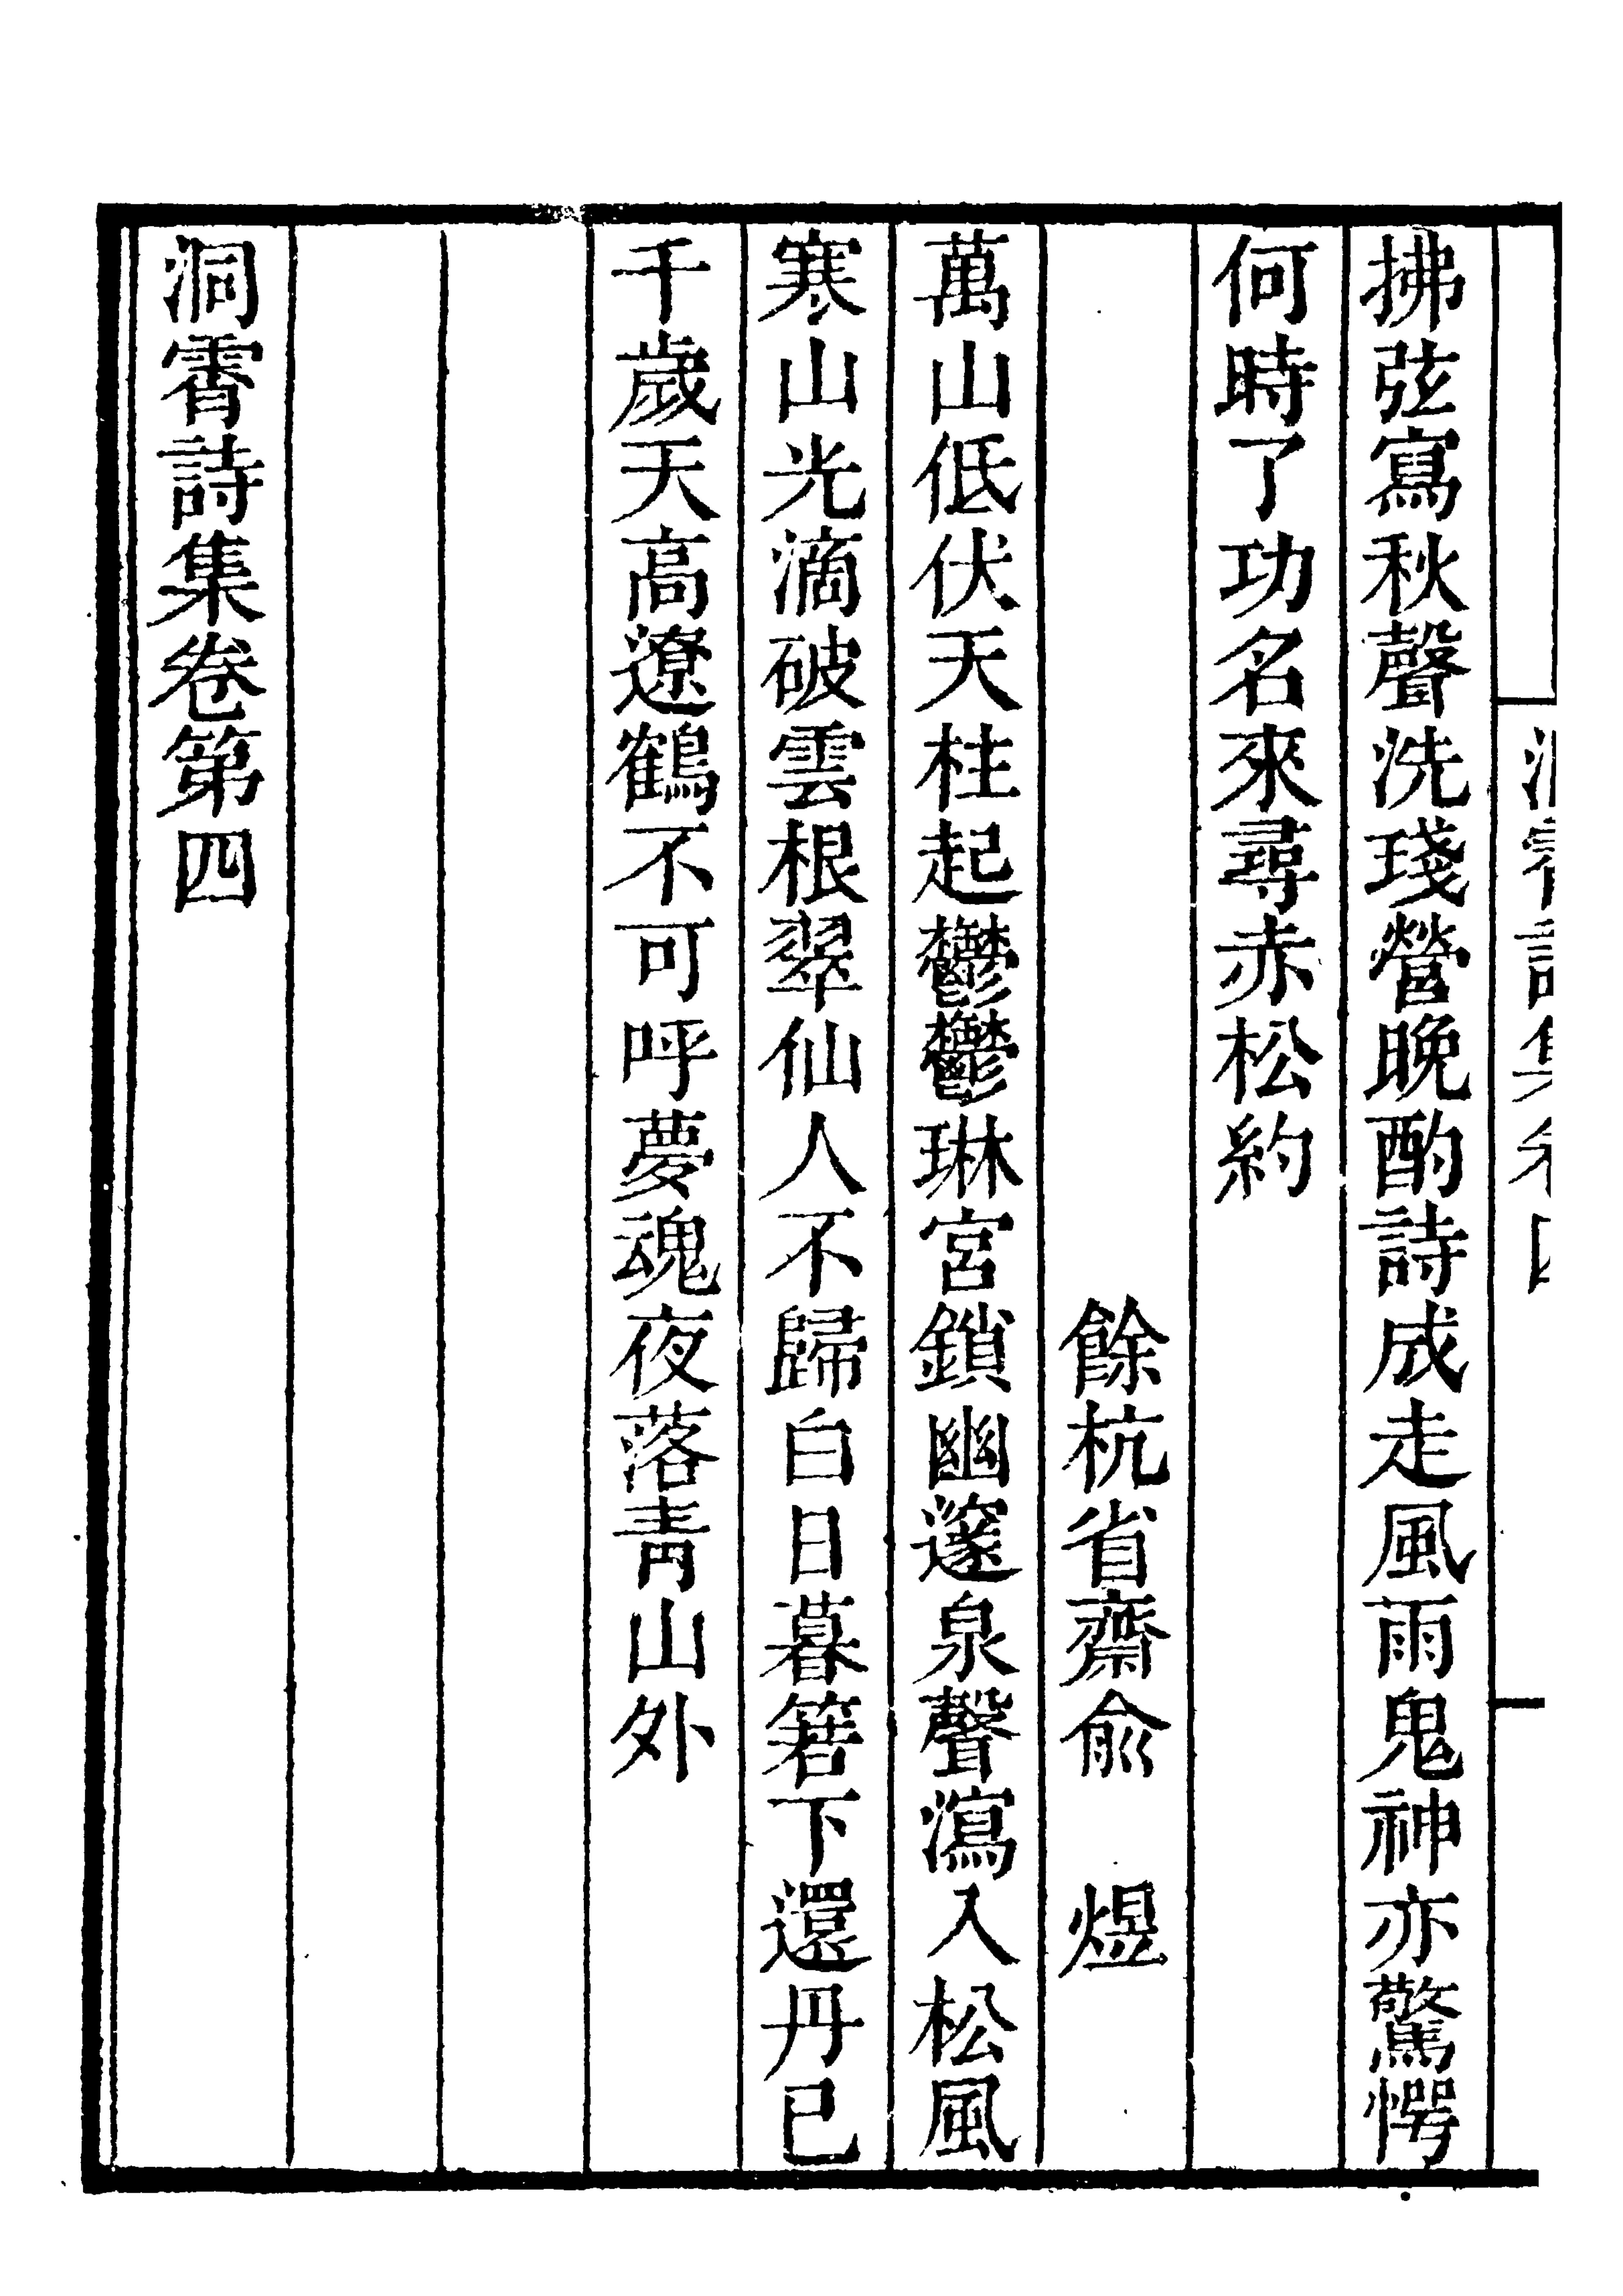 拂弦寫秋聲洗琖營晚酌詩成走風雨鬼神亦驚愕
何時了功名來尋赤松約
餘杭省齋俞　煜
萬山低伏天柱起鬱鬱琳宮鎖幽邃泉聲瀉入松風
寒山光滴破雲根翠仙人不歸白日暮箬下還丹已
千歲天高遼鶴不可呼夢魂夜落靑山外
洞霄詩集卷第四